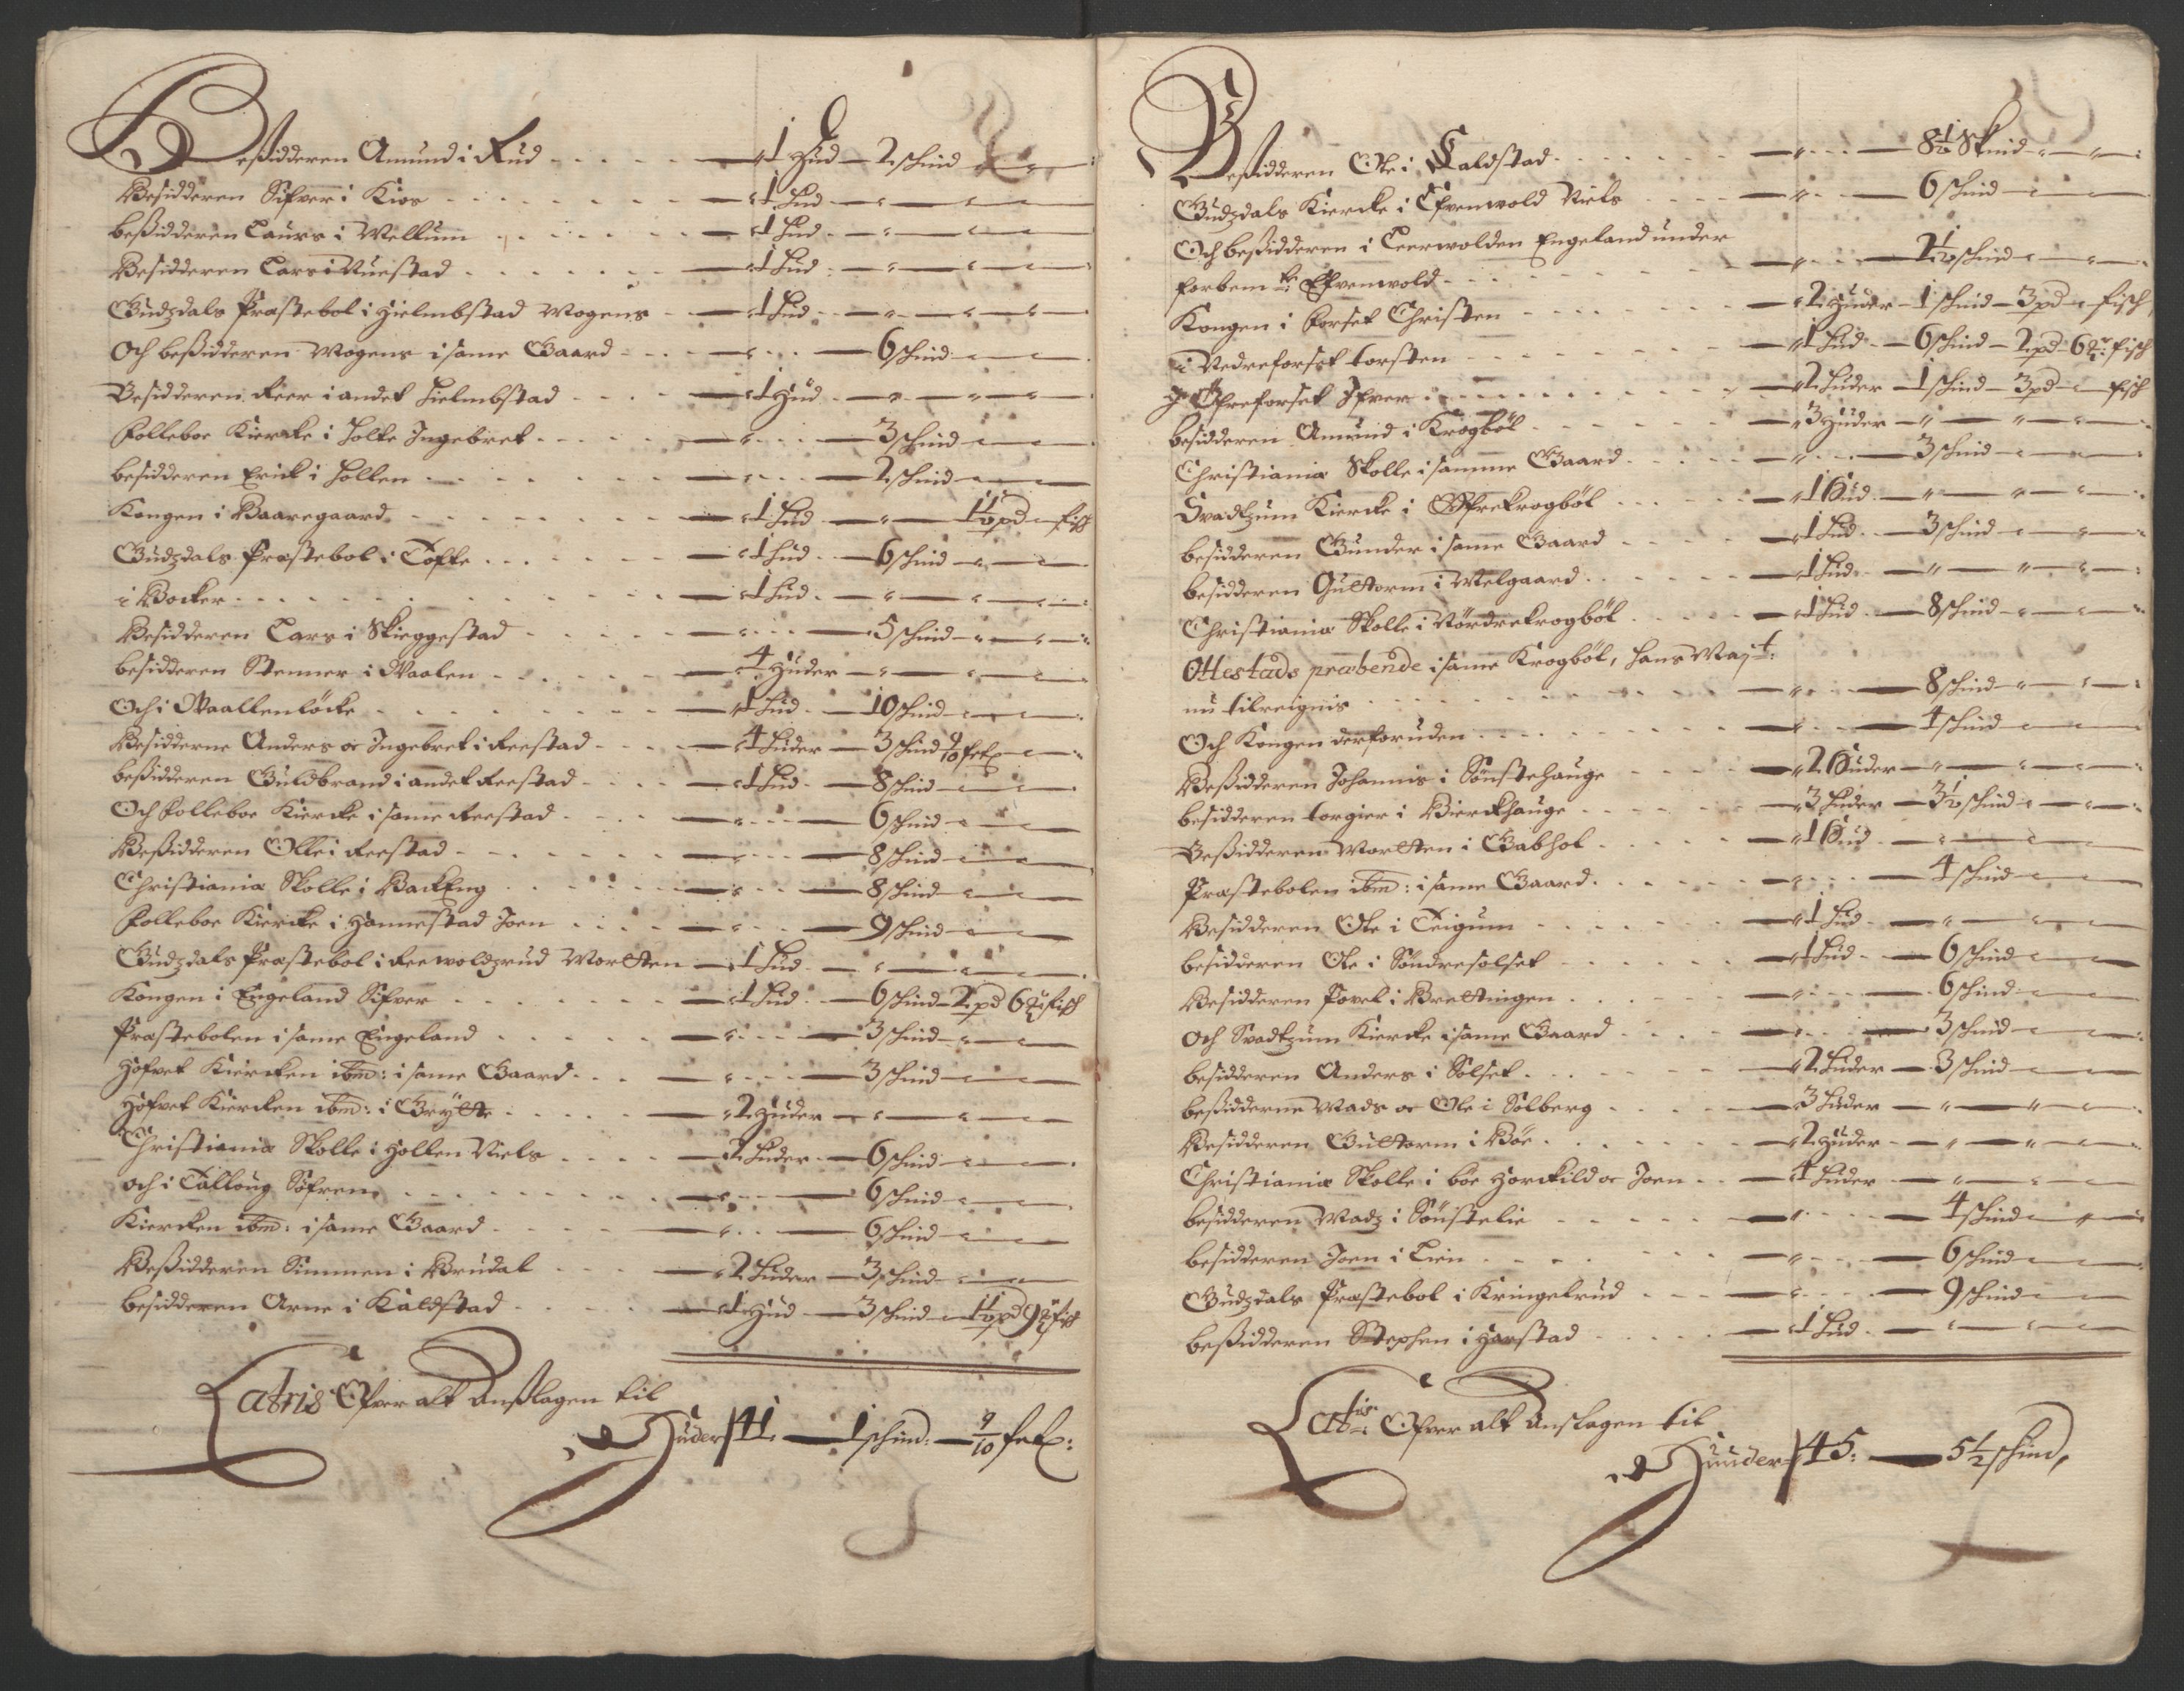 Beßidderen Amund i Rud - - - - 1 Hud - 2 schind
Besidderen Sifver i Kios - - - - 1 Hud
beßidderen Laurs i Wellum - - - - 1 Hud
Besidderen Lars i Ruestad - - - - 1 Hud
Gudzdals Præstebol i Hielmbstad Mogens - - 1 Hud
Och beßidderen Mogens i same Gaard - - 6 schind
Besidderen Peer i andet Hielmbstad - - 1 Hud
Folleboe Kiercke i Holte Ingebret - - - 3 schind
besidderen Erick i Hollen - - - - 2 schind
Kongen i Baaregaard - - - - 1 Hud - 1½ pd fisk
Gudzdals Præstebol i Tofte - - - - 1 Hud - 6 schind
i Bocker - - - - 1 Hud
Besidderen Lars i Skieggestad - - - - 5 schind
besidderen Stenner i Waalen - - - - 4 Huder
Och i Waallenløcke - - - - 1 Hud - 10 schind
Besidderne Anders oc Ingebret i Reestad - - 4 Huder - 3 schind 9/10
beßidderen Guldbrand i andet Reestad - - 1 Hud - 8 schind
Och Folleboe Kiercke i same Reestad - - - 6 schind
Beßidderen Olle i Reestad - - - - 8 schind
Christiania Skolle i BackEng - - - - 8 schind
Folleboe Kiercke i Hannestad Joen - - - 9 schind
Gudzdals Præstebol i Reewoldzrud Mortten - 1 Hud
Kongen i Engeland Sifver - - - - 1 Hud - 6 schind - 2 pd 6 fisk
Præstebolen i same Engeland - - - - 3 schind
Hofvet Kiercken ibm: i same Gaard - - - 3 schind
Hofvet Kiercken ibm: i Grytte - - - 2 Huder
Christiania Skolle i Hollen Niels - - - 2 Huder - 6 schind
och i Talloug Søfren - - - - 6 schind
Kiercken ibm: i same Gaard - - - - 6 schind
Beßidderen Simmen i Brudal - - - - 2 Huder - 3 schind
besidderen Arne i Kaldstad - - - - 1 Hud - 3 schind - 1½ pd 9 fisk
Latris Ofver alt Anslagen til
Huder 41 - 1 schind: - 9/10
Beßidderen Ole i Kaldstad - - - - 8½ Skind
Gudzdals Kiercke i Efvenwold Niels - - - 6 schind
Och beßidderen i Leerwolden Engeland under
forbemte Efvenwold - - - - 2½ schind
Kongen i Forset Christen - - - - 2 Huder - 1 schind - 3 pd - fisch
i Nedreforset torsten - - - - 1 Hud - 6 schind - 2 pd - 6 fisch
J Øfreforset Ifver - - - - 2 Huder - 1 schind - 3 pd - fisch
besidderen Amund i Krogbøl - - - - 3 Huder
Christiania Skolle i samme Gaard - - - 3 schind
Svadtzum Kiercke i Øfrekrogbøl - - - 1 Hud
besidderen Gunder i same Gaard - - - 1 Hud - 3 schind
besidderen Guttorm i Welgaard - - - 1 Hud
Christiania Skolle i Nørdrekrogbøl - - - 1 Hud - 8 schind
Ottestads præbende i same Krogbøl, Hans Mayt:
nu tilreignis - - - - 8 schind
Och Kongen derforuden - - - - 4 schind
Beßidderen Johannis i Sønstehauge - - - 2 Huder
besidderen torgier i Bierckhauge - - - 3 Huder - 3½ schind
Beßidderen Mortten i Gabhol - - - 1 Hud
Præstebolen ibm: i same Gaard - - - 4 schind
Besidderen Ole i Teigum - - - - 1 Hud
besidderen Ole i Søndresolset - - - 1 Hud - 6 schind
Besidderen Povel i Brettingen - - - 6 schind
Och Svadtzum Kiercke i same Gaard - - - 3 schind
besidderen Anders i Solset - - - 2 Huder - 3 schind
beßidderne Mads oc Ole i Solberg - - - 3 Huder
Besidderen Guttorm i Bøe - - - 2 Huder
Christiania Skolle i bøe Horckild oc Joen - - 4 Huder
besidderen Madz i Sønstelie - - - 4 schind
besidderen Joen i Lien - - - - 6 schind
Gudzdals Præstebol i Kringelrud - - - 9 schind
beßidderen Stephen i Harstad - - - 1 Hud
Latris Ofver alt Anslagen til
Huuder 45: - 5½ schind,